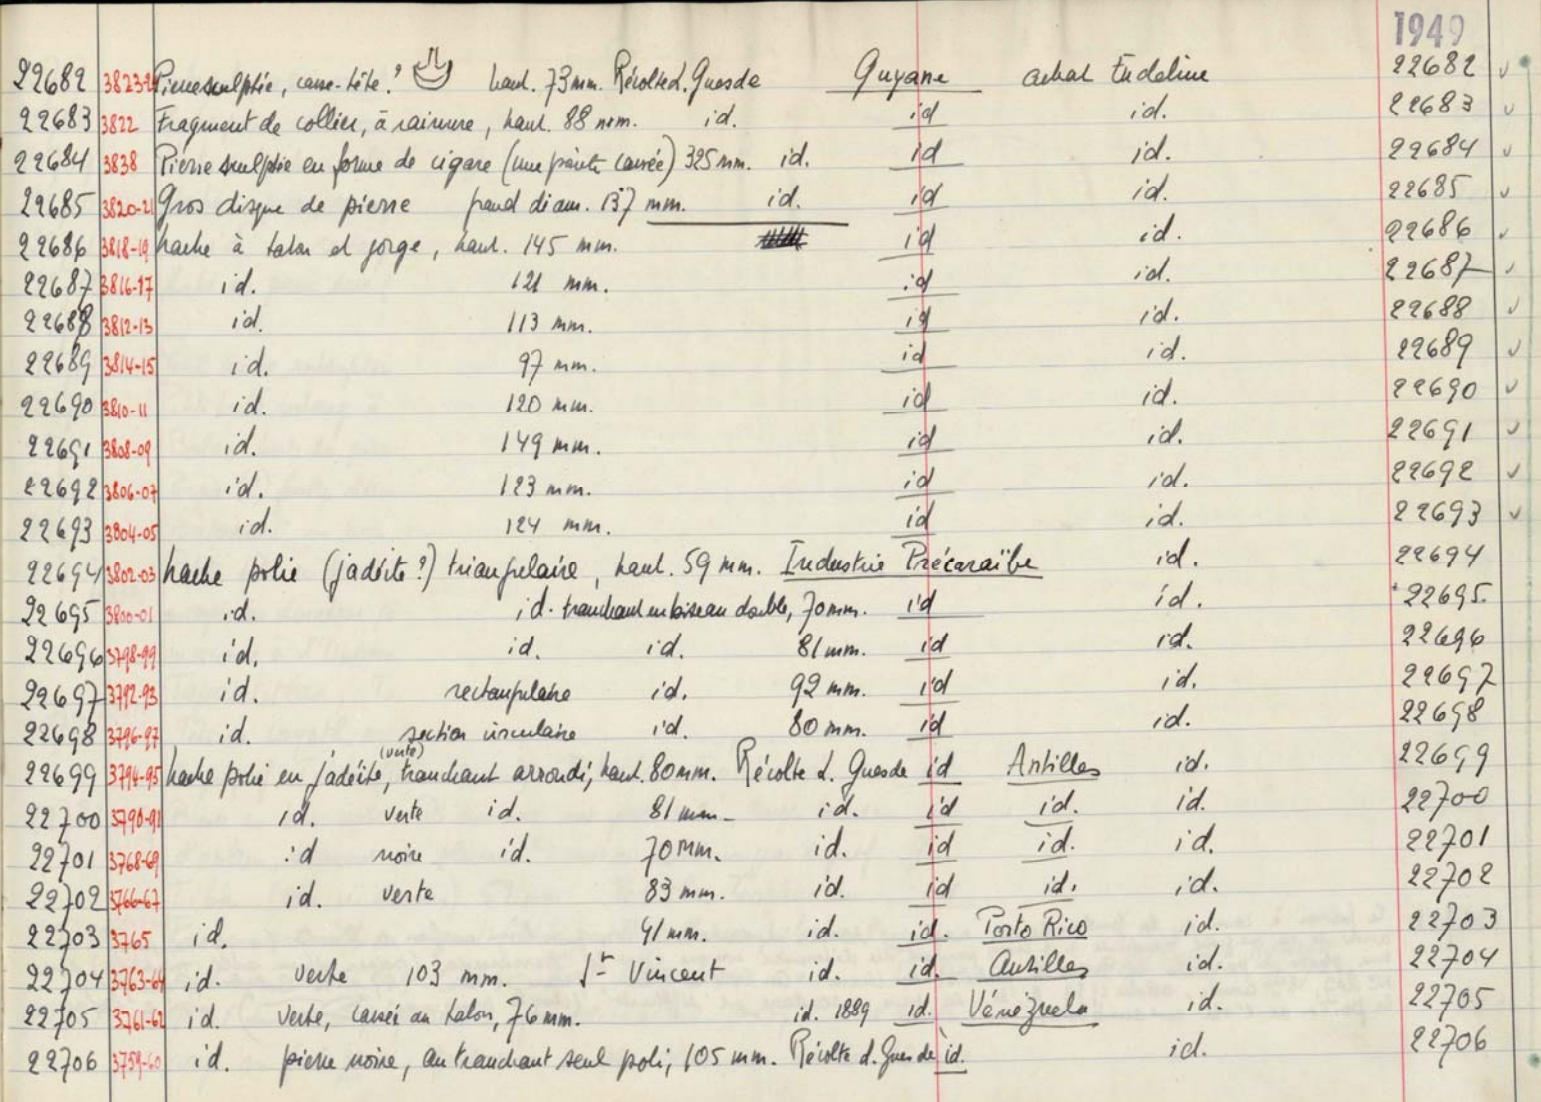 1949
22682 3823-24 Pierre sculptée, casse-tête ? haut. 73 mm. Récolte d. Guesde Guyane achat Endeline 22682
22683 3822 Fragment de collier, à rainure, haut. 88 mm. id. id id. 22683
22684 3838 Pierre sculptée en forme de cigare (une pointe carrée) 325 mm. id. id id. 22684
22685 3820-21 Gros disque de pierre grand diam. 137 mm. id. id id. 22685
22686 3818-19 hache à talon et gorge, haut. 145 mm. id id. 22686
22687 3816-17 id. 121 mm. id id. 22687
22688 3812-13 id. 113 mm. id id. 22688
22689 3814-15 id. 97 mm. id id. 22689
22690 3810-11 id. 120 mm. id id. 22690
22691 3808-09 id. 149 mm. id id. 22691
22692 3806-07 id. 123 mm. id id. 22692
22693 3804-05 id. 124 mm. id id. 22693
22694 3802-03 hache polie (jadéite ?) triangulaire, haut. 59 mm. Industrie Précaraïbe id. 22694
22695 3800-01 id. id. tranchant en biseau double, 70 mm. id id. 22695
22696 3798-99 id. id. id. 81 mm. id id. 22696
22697 3792-93 id. rectangulaire id. 92 mm. id id. 22697
22698 3796-97 id. section circulaire id. 80 mm. id id. 22698
22699 3794-95 hache polie en jadéite, (verte) tranchant arrondi, haut. 80 mm. Récolte d. Guesde id Antilles id. 22699
22700 3790-91 id. verte id. 81 mm. id. id id. id. 22700
22701 3768-69 id noire id. 70 mm. id. id id. id. 22701
22702 3766-67 id. verte 83 mm. id. id id. id. 22702
22703 3765 id. 41 mm. id. id. Porto Rico id. 22703
22704 3763-64 id. verte 103 mm. St Vincent id. id. Antilles id. 22704
22705 3761-62 id. verte, carrée au talon, 76 mm. id. 1889 id. Vénézuela id. 22705
22706 3759-60 id. pierre noire, au tranchant seul poli, 105 mm. Récolte d. Guesde id. id. 22706